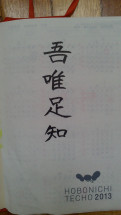 吾唯足知
HOBONICHI
TECHO 2013